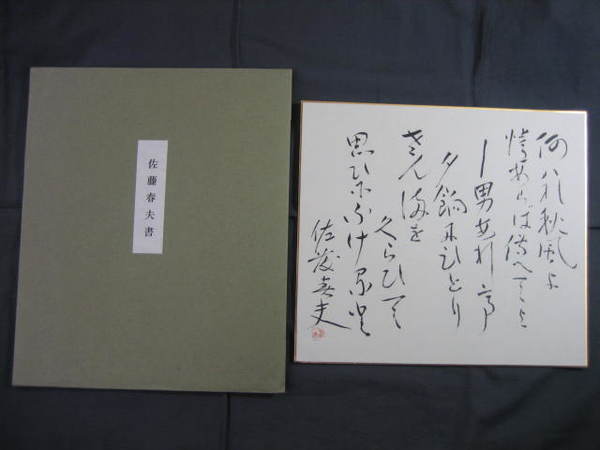 佐藤春夫書
あハれ秋風よ
情あらば傳へてよと
―男ありて
夕餉にひとり
さんまを
くらひて
思ひにふけると
佐藤春夫